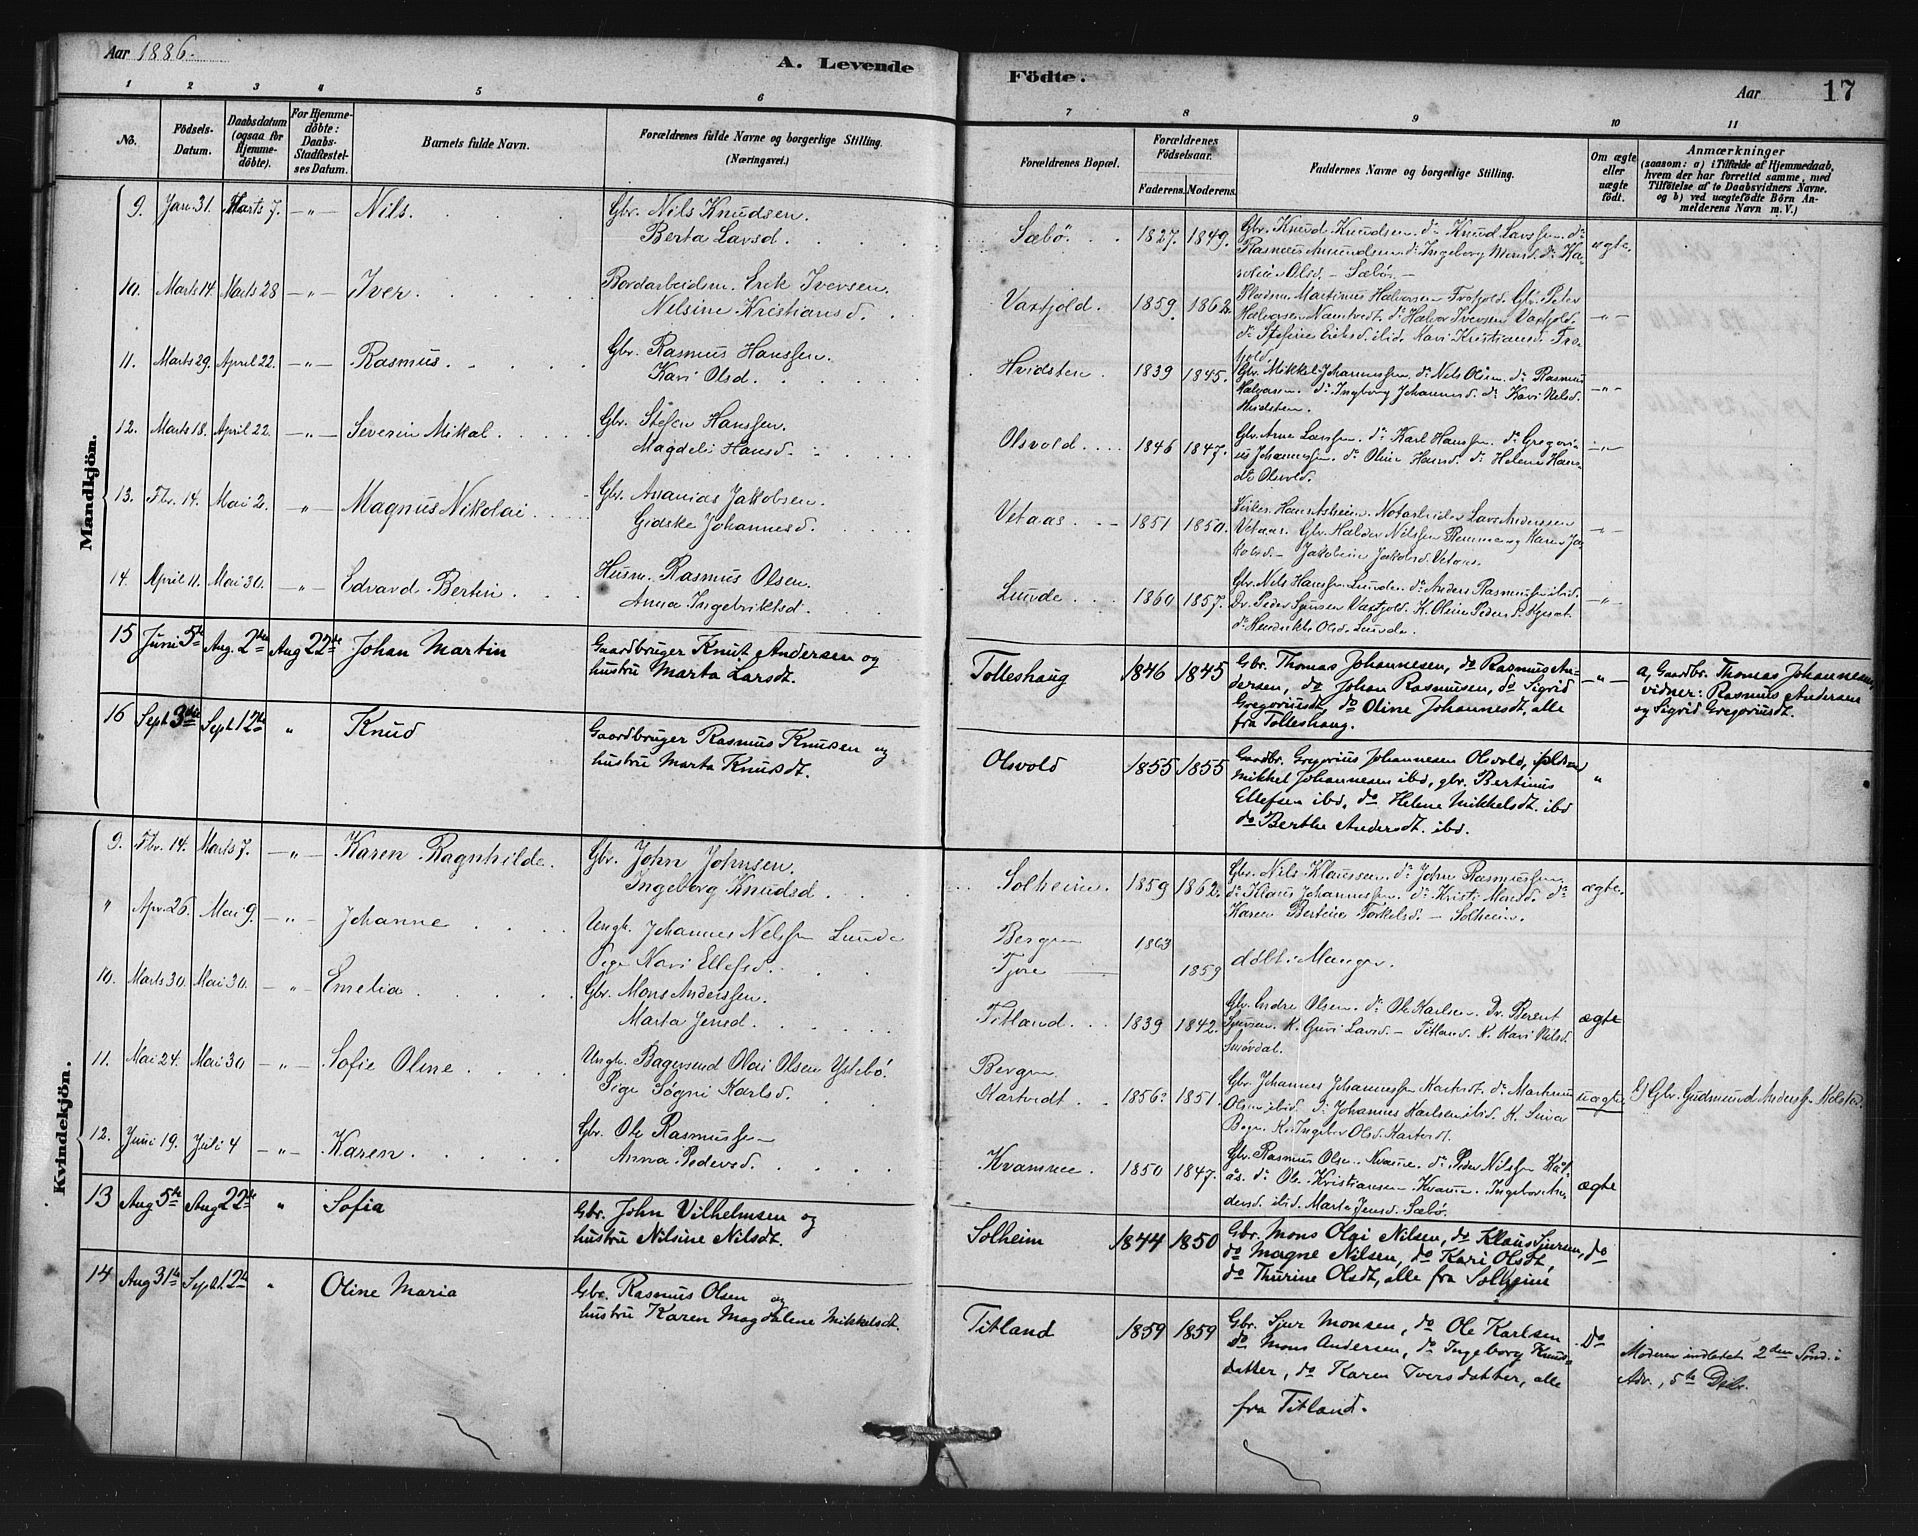 Aar 1886.
A. Levende Födte.
Aar 17
1 2 3 4 5 6 7 8 9 10 11
No.
Födsels-Datum.
Daabsdatum (ogsaa for Hjemmedöbte).
For Hjemmedöbte: Daabs-Stadfæstelses Datum.
Barnets fulde Navn.
Forældrenes fulde Navne og borgerlige Stilling.
(Næringsvei.)
Forældrenes Bopæl.
Forældrenes Födselsaar.
Faderens. Moderens.
Faddernes Navne og borgerlige Stilling.
Om ægte eller uægte födt.
Anmærkninger
(saasom: a) i Tilfælde af Hjemmedaab, hvem der har forrettet samme, med Tilföielse af to Daabsvidners Navne. og b) ved uægtefödte Börn Anmelderens Navn m. V.)
Mandkjön.
9. Jan. 31. Marts 7. -"- Nils. Gbr. Nils Knudsen.
Berta Larsd.
Sæbö. 1827. 1849. Gbr. Knud Knudsen. do Knud Larssen. do
Rasmus Amundsen. do Ingeborg Monsd. do Ka-
Olsd. - Sæbö. -
ægte
10. Marts 14. Marts 28 -"- Iver. Bordarbeidsm. Erik Iversen.
Nelsine Kristiansd.
Vaxfjold. 1859. 1862. Pladsm. Martinus Halvorsen Gbr. Peter
Halvorsen Namtvedt. do Halvor Iversen Vaxfjold.
do Stefine Eriksd. ibid. Kari Kristiansd.
-"-
11. Marts 29. April 22. -"- Rasmus. Gbr. Rasmus Hanssen.
Kari Olsd.
Hvidsten. 1839 1845. Gbr. Mikkel Johannessen. do Nils Olsen. do Rasmus
Halvorsen. do Ingborg Johannesd. do Kari Nilsd.
Hvidsten.
-"-
12. Marts 18. April 22. -"- Severin Mikal. Gbr. Stefen Hanssen.
Magdeli Hansd.
Olsvold. 1846 1847. Gbr. Arne Larssen. do Karl Hanssen. do Gregori-
us Johannessen. do Oline Hansd. do Helene Hans-
dt. Olsvold.
-"-
13. Fbr. 14. Mai 2. -"- Magnus Nikolai Gbr. Ananias Jakobsen.
Gidske Johannesd.
Vetaas. 1851 1850. Hans Notarbeider Lars Anderssen
Vetaas. Gbr. Haldor Nilssen Karen Ja-
kobsd. - Jakobine Jakobsd. Vetaas.
-"-
14. April 11. Mai 30. -"- Edvard Bertin. Husm. Rasmus Olsen.
Anna Ingebriktsd.
Lunde. 1860 1857. Gbr. Nils Hanssen Lunde. do Anders Rasmussen ibid.
Dr. Peder Sjursen Vaxfjold. K. Oline Pedersd.
do Hendrikke Olsd. Lunde.
-"-
15 Juni 5te Aug. 2den Aug 22de Johan Martin Gaardbruger Knut Andersen og
hustru Marta Larsdt.
Tolleshaug 1846 1845 Gbr. Thomas Johannesen, do Rasmus An-
dersen, do Johan Rasmusen, do Sigrid
Gregoriusdt, do Oline Johannesdt, alle
fra Tolleshaug.
-"-
a, Gaardbr. Thomas Johannesen,
vidner: Rasmus Andersen
og Sigrid Gregoriusdt.
16 Sept 3die Sept 12te " Knud Gaardbruger Rasmus Knusen og
hustru Marta Knusdt.
Olsvold 1855 1855 Gaardbr. Gregorius Johannesen Olsvold,
Mikkel Johannesen ibd, gbr. Bertinus
Ellefsen ibd, do Helene Mikkelsdt. ibd
do Berthe Andersdt. ibd.
"
Kvindekjön.
9. Fbr. 14. Marts 7. -"- Karen Ragnhilde. Gbr. John Johnsen.
Ingeborg Knudsd.
Solheim. 1859 1862. Gbr. Nils Klaussen. do John Rasmussen.
do Klaus Johannessen. do Kristi Monsd. do
Karen Bertine Torkelsd. - Solheim.
ægte.
" Apr. 26. Mai 9. -"- Johanne Ungk. Johannes Nelssen Lunde
Pige Kari Ellefsd.
Bergen 1863
Tjore 1859
döbt i Manger.
10. Marts 30. Mai 30. -"- Emelia Gbr. Mons Anderssen.
Marta Jensd.
Titland. 1839 1842. Gbr. Endre Olsen. do Ole Karlsen. Dr. Berent
Sjursen. K. Guri Larsd. - Titland. K. Kari Nilsd.
Smördal.
ægte
11. Mai 24. Mai 30 -"- Sofie Oline Ungk. Bagersvend Olai Olsen Ystebö.
Pige Sögni Karlsd.
Bergen
Kartvedt 1856? 1851. Gbr. Johannes Johannessen Kartvedt. do Martinus
Olsen ibid. do Johannes Karlsen ibid. K.
K. Ingebor Olsd. Kartvedt.
uægte
Gbr. Gudmund Anderss.
12. Juni 19. Juli 4 -"- Karen. Gbr. Ole Rasmussen
Anna Pedersd.
Kvamme. 1850 1847. Gbr. Rasmus Olsen Kvamme. do Peder Nilssen
ås. do Ole Kristiansen Kvamme. Ingebor An-
dersd. ibid. Marta Jensd. Sæbö.
ægte
13 Aug 5te Aug 22de " Sofia Gbr. John Vilhelmsen og
hustru Nilsine Nilsdt.
Solheim 1844 1850 Gbr. Mons Olai Nilsen, do Klaus Sjursen,
do Magne Nilsen, do Kari Olsdt,
do Thurine Olsdt, alle fra Solheim
do
14 Aug 31te Sept 12te " Oline Maria Gbr. Rasmus Olsen og
hustru Karen Magdalene Mikkelsdt.
Titland 1859 1859 Gbr. Sjur Monsen, do Ole Karlsen
do Mons Andersen, do Ingeborg Knuds-
datter, do Karen Iversdatter, alle
fra Titland.
Do
Moderen indledet 2den Sönd. i
Adv., 5te Debr.